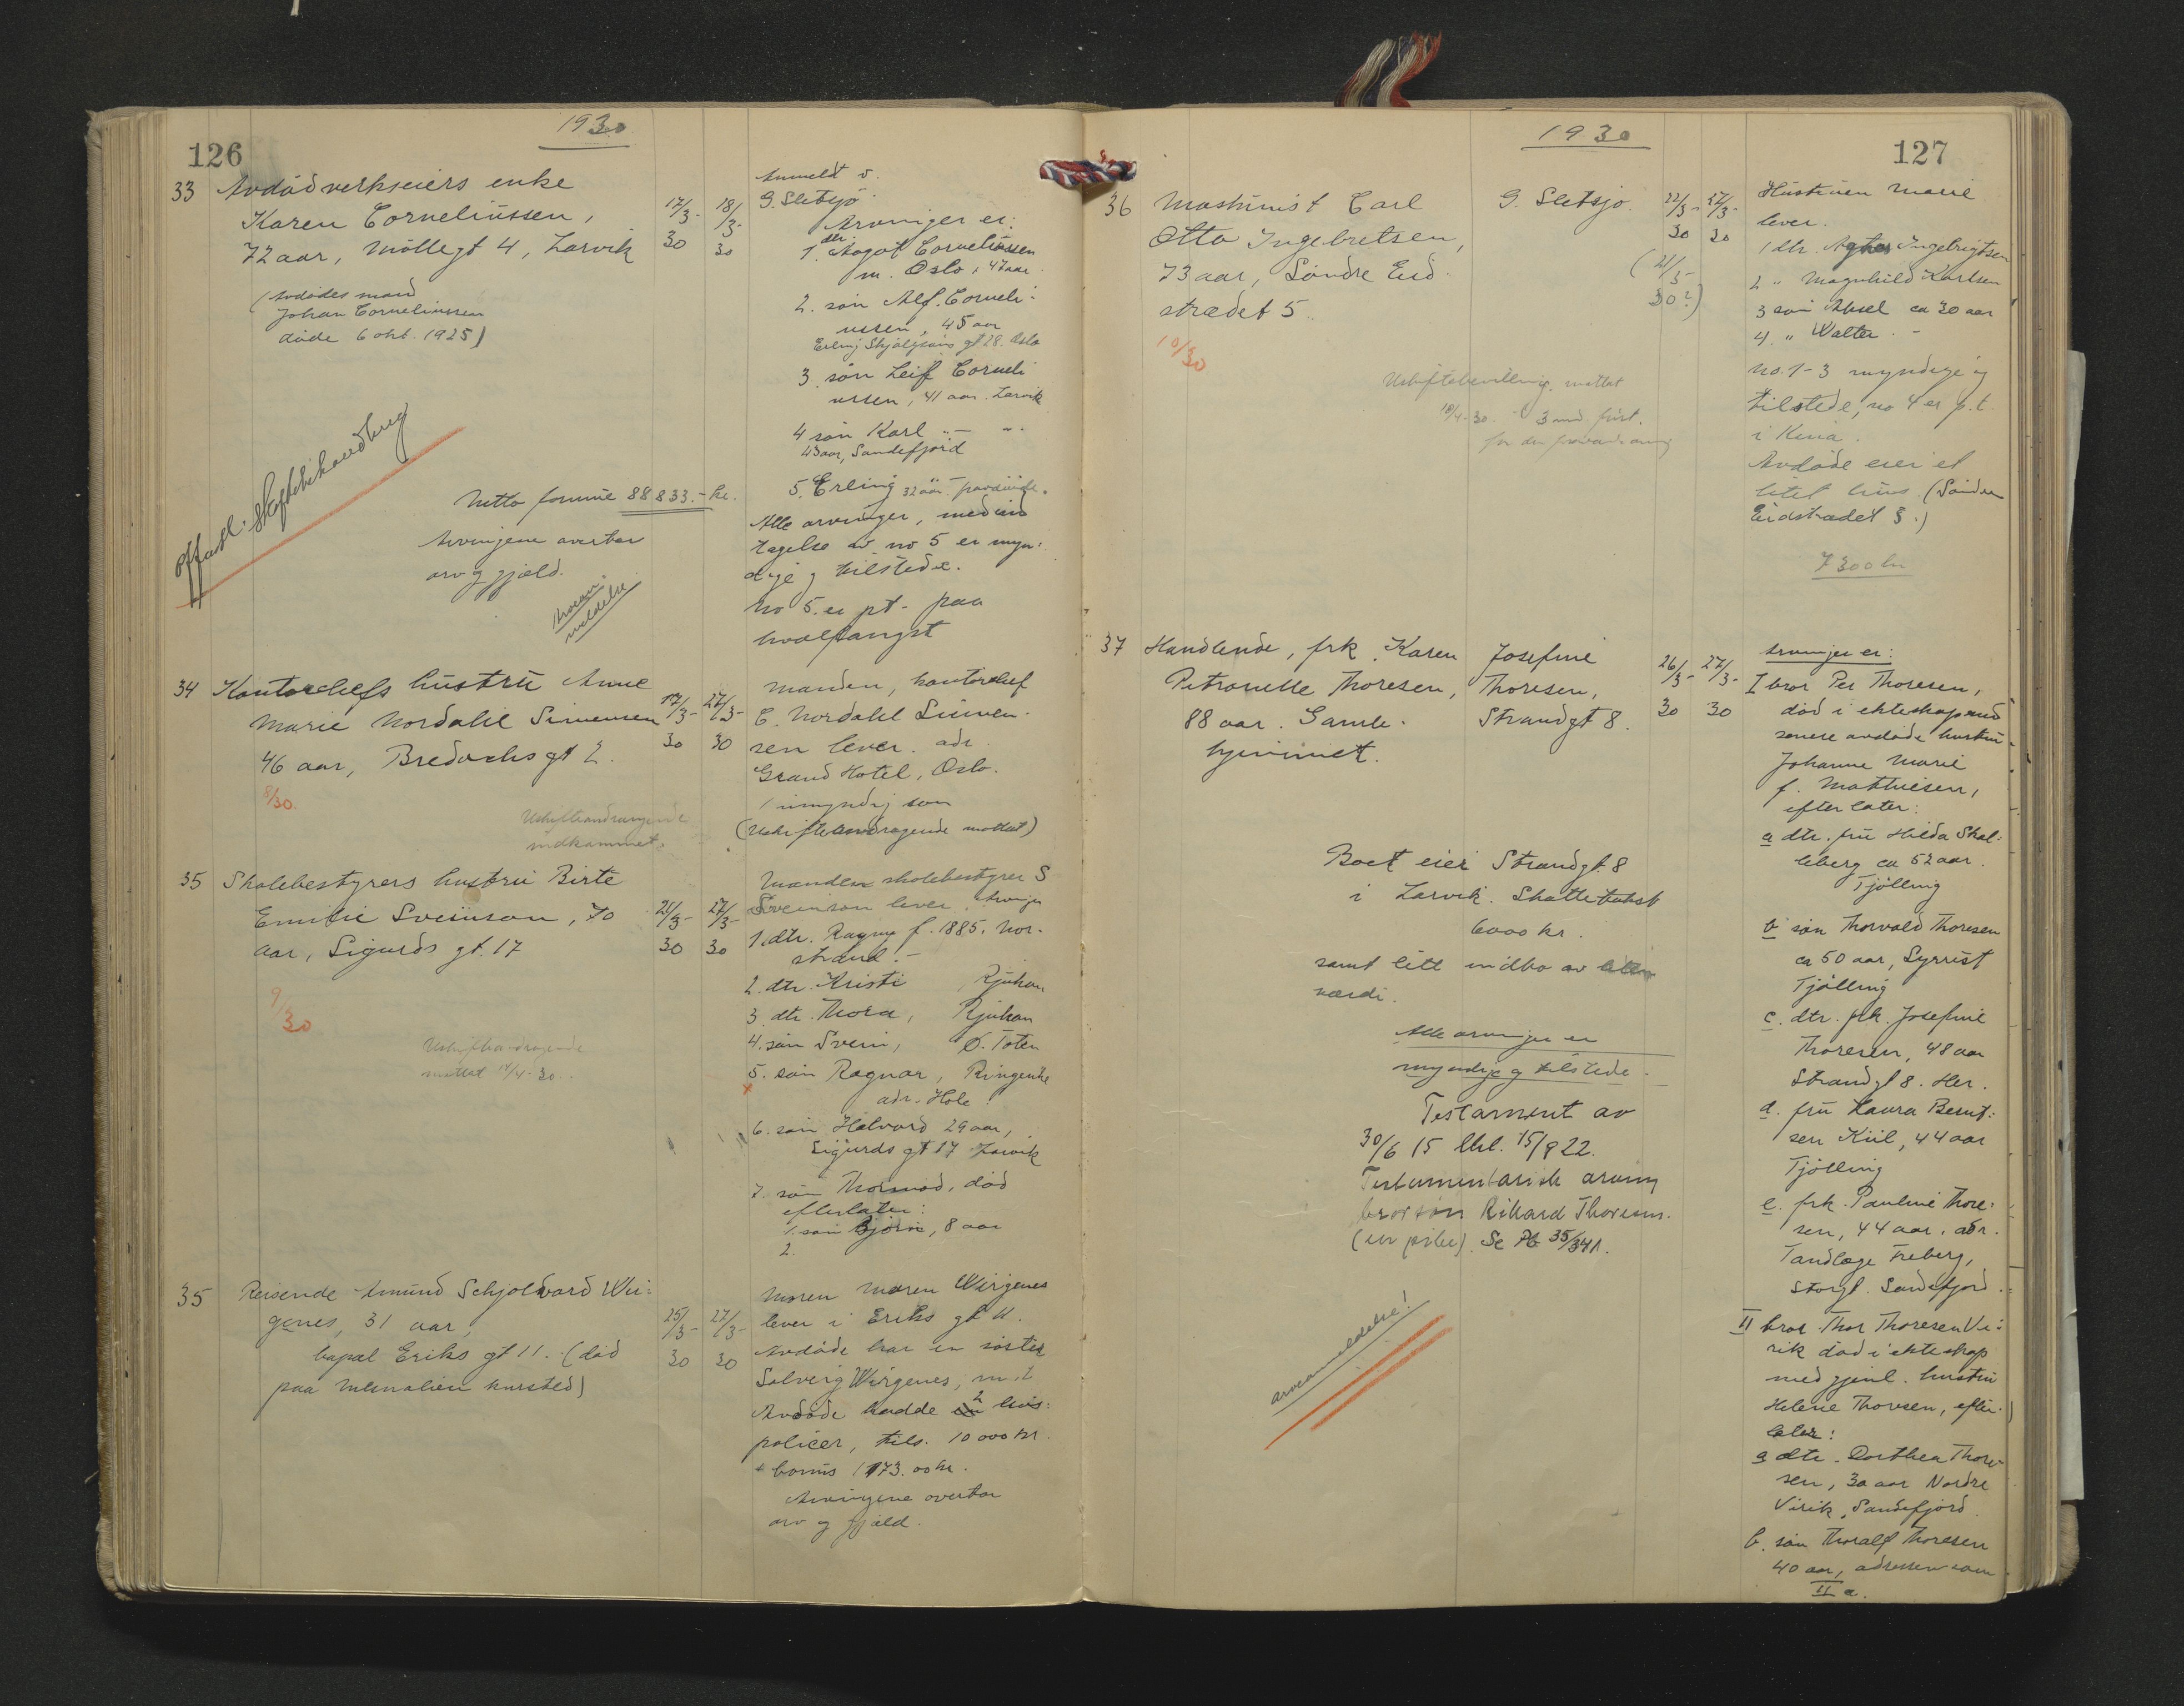 126
1930
33 Avdöd verkseiers enke
Karen Corneliussen,
72 aar, Möllegt 4, Larvik
(Avdödes mand
Johan Corneliussen
döde 6 okt. 1925)
17/3-30
18/3-30
Anmeldt v.
G. Sletsjö.
Arvinger er:
1. dtr. Aagot Corneliussen
m. Oslo, 47 aar
2. sön Alf. Corneli-
ussen, 45 aar
Erling Skjalgsöns gt 28. Oslo
3. sön Leif Corneli
ussen, 41 aar. Larvik
4 sön Karl
43 aar, Sandefjord
5. Erling 32 aar
Alle arvinger, med und
tagelse av no 5 er myn-
dige og tilstede.
No 5. er pt. paa
hvalfangst
offentl. Skiftebehandling
Netto formue 88833.- kr.
Arvingene overtar
arv og gjæld.
meldelse
34 Kontorchefs hustru Anne
Marie Nordahl Simensen
46 aar, Bredochs gt 2.
8/30.
17/3-30
27/3-30
Manden, kontorchef
C. Nordahl Simen-
sen lever. adr.
Grand Hotel, Oslo.
1 umyndig sön
(Uskifteandragende mottat)
Uskifteandragende
indkommet.
35 Skolebestyrers hustru Birte
Emilie Sveinson, 70
aar, Sigurds gt. 17
9/30
21/3-30
27/3-30
Uskifteandragende
mottat 14/4-30.
Manden skolebestyrer S
Sveinson lever. Arvinger
1. dtr. Ragna f. 1885. Nor-
strand.
2. dtr. Kristi Rjukan
3. dtr. Thora, Rjukan
4. sön Svein, Ö. Toten
5. sön Ragnar, Ringerike
adr. Hole.
6. sön Halvard 29 aar,
Sigurds gt 17 Larvik
7. sön Thormod, död
efterlater:
1. sön Björn, 8 aar
2.
35 Reisende Amund Schjoldvard Wir-
genes, 31 aar,
bopæl Eriks gt 11. (död
paa Mesnalien kursted)
25/3-30
27/3-30
Moren Maren Wirgenes
lever i Eriks gt 11.
Avdöde har en söster
Solveig Wirgenes,
Avdöde hadde 2 livs-
policer, tils. 10 000 kr.
+ bonus 1173.00 kr.
Arvingene overtar
arv og gjæld.
1930
127
36 Maskinist Carl
Otto Ingebretsen,
73 aar, Söndre Eid
strædet 5.
10/30
G. Sletsjö.
22/3-30
27/3-30
(21/5-30?)
Uskiftebevilling mottat
18/4-30. 3 mnd. frist.
Hustruen Marie
lever.
1 dtr. Agnes Ingebrigtsen
2 " Magnhild Karlsen
3 sön Aksel ca 30 aar
4. " Walter -
no. 1-3 myndige og
tilstede, no 4 er p.t.
i Kina.
Avdöde eier et
litet hus (Söndre
Eidstrædet 5.)
7300 kr
37 Handlende, frk. Karen
Petronelle Thoresen,
88 aar. Gamle-
hjemmet.
Josefine
Thoresen,
Strandgt 8.
26/3-30
27/3-30
Boet eier Strandgt. 8
i Larvik. Skattetakst
6000 kr.
samt litt indbo av liten
værdi.
Alle arvinger er
myndige og tilstede.
Testament av
30/6 15 15/9 22.
Testamentarisk arving
brorsön Rikard Thoresen.
Se 35/341.
arveanmeldelse!
Arvinger er:
I bror Per Thoresen,
död i ekteskap med
senere avdöde hustru
Johanne Marie
f. Mathisen,
efterlater:
a dtr. fru Hilda Skal-
leberg ca 52 aar.
Tjölling
b sön Thorvald Thoresen
ca 50 aar, Syrrist
Tjölling
c. dtr. frk. Josefine
Thoresen, 48 aar
Strandgt 8. Her.
d. fru Laura Bernt-
sen Kiil, 44 aar
Tjölling
e. frk. Pauline Thore-
sen, 44 aar, adr.
Tandlæge Freberg,
Storgt. Sandefjord.
II bror Thor Thoresen Vi-
rik död i ekteskap
med gjenl. hustru
Helene Thoresen, efter-
later:
a dtr. Dorthea Thore-
sen, 30 aar Nordre
Virik, Sandefjord.
b. sön Thoralf Thoresen
40 aar, adressen som
II a.